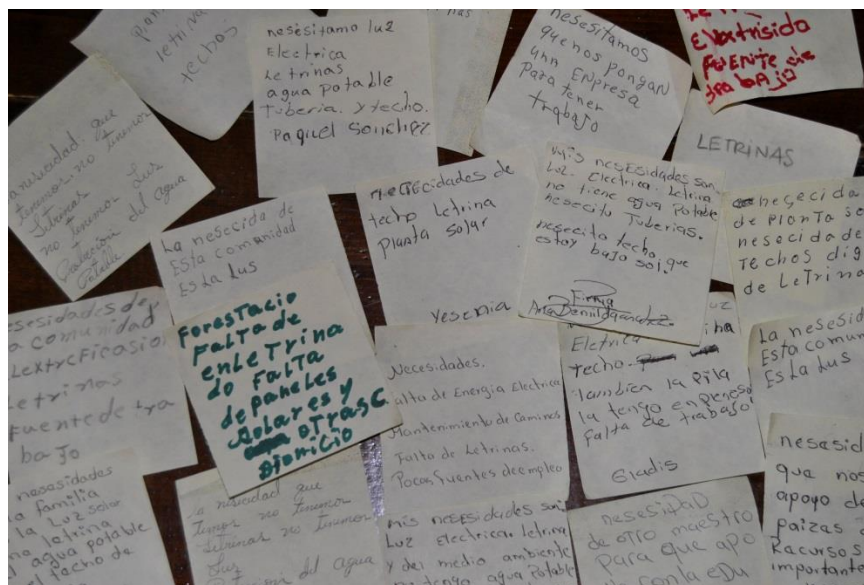 letrina
techos
nesesitamo luz
Electrica
Letrinas
agua potable
Tuberia. y techo.
Raquel Sonchez
nesesitamos
que nos pongan
unn Enpresa
Para tener
trabajo
Elextrisida
fuente de
trabajo
LETRINAS
La nisicidad que
tenemos no tenemos
Letrinas
no tenemos Lus
del agua
La nesecida de
Esta comunidad
Es La Lus
necECidades de
techo Letrina
planta solar
Yesenia
Mis nesEsidades son.
Luz. Electrica. Letrina
no tiene agua Potable
nesecito Tuberias.
nesecito techo, que
estoy bajo sol.
Firma
nesecida
de planta so
nesecida de
Techos dig
de LeTrina
sesidades de
a comunidad
Lextreficasion
letrinas
fuente de tra
bajo
ForesTacio
FalTa de
enLeTrina
do FalTa
de paneles
Solares y
oTras C
Dionicio
Necesidades.
Falta de Energia Electrica
Mantenimiento de Caminos
Falta de Letrinas.
Pocas fuentes de empleo
Luz
Eletrica
techo.
Tambien la Pila
la tengo en
falta de trabajo
Gladis
La nesesid
Esta comun
Es La Lus
nesesidades
La familia
la Luz solar
na letrina
agua potable
el techo de
La nisicidad que
no tenemos
Letrinas no tenemos
Lus
del agua
mis nesesidades son:
Luz electrica. letrina
y del medio ambiente
no tengo agua Potable
nesesidad
de otro maestro
para que apo
con la edu
nesesid
que nos
apoyo de
paizas
Racursos
importante